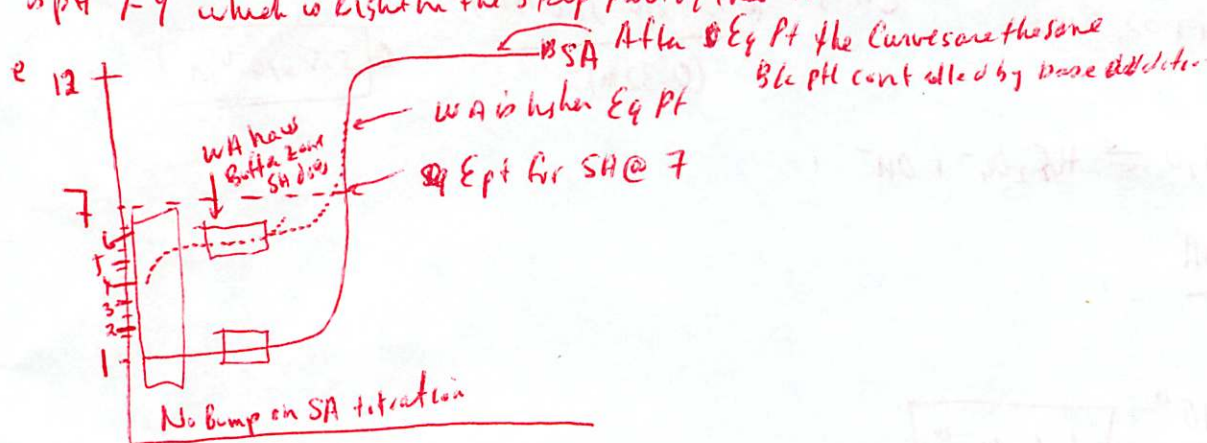 is pH 7-9 which is right in the steep part of the
e 12
SA After Eq Pt the Curves are the same
B/c pH controlled by base addition
WA is higher Eq Pt
WA has
Buffer zone
SA does
Eq pt for SA @ 7
7
6
5
4
3
2
1
No Bump on SA titration